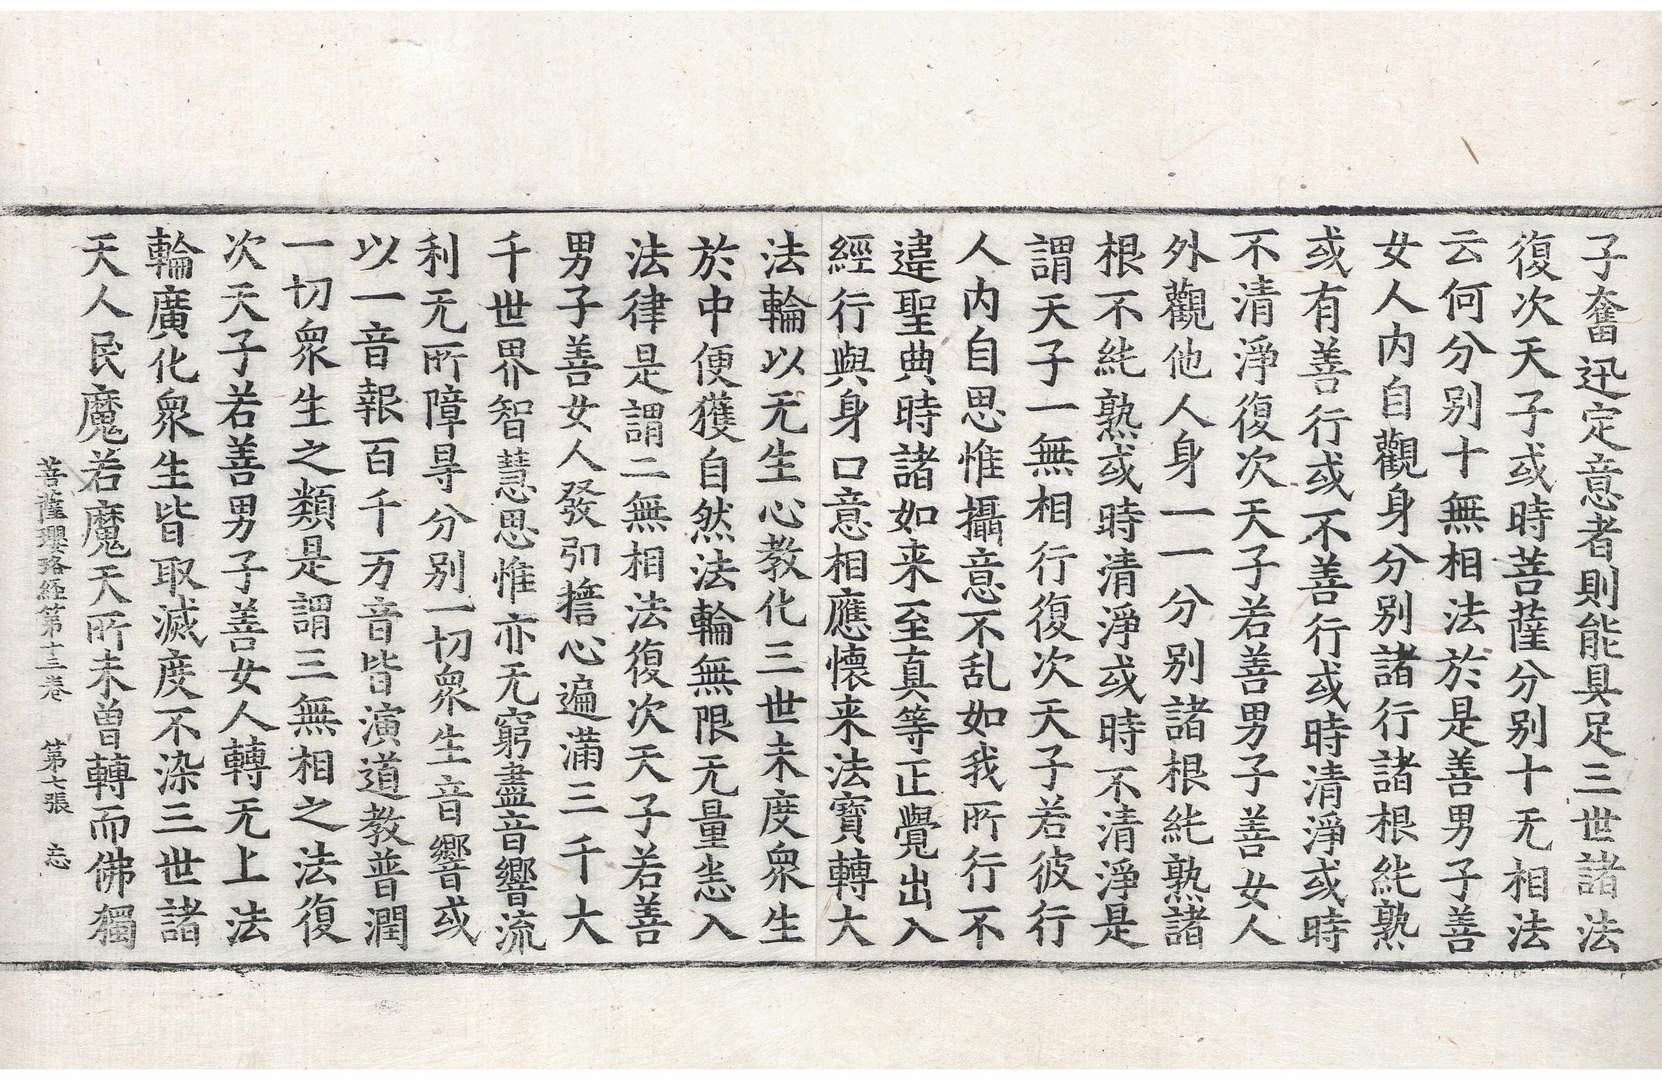 子奮迅定意者則能具足三世諸法
復次天子或時菩薩分别十无相法
云何分别十無相法於是善男子善
女人内自觀身分别諸行諸根純熟
或有善行或不善行或時清淨或時
不清淨復次天子若善男子善女人
外觀他人身一一分别諸根純熟諸
根不純熟或時清淨或時不清淨是
謂天子一無相行復次天子若彼行
人内自思惟攝意不乱如我所行不
違聖典時諸如来至真等正覺出入
經行與身口意相應懷来法寶轉大
法輪以无生心教化三世未度衆生
於中便獲自然法輪無限无量恙入
法律是謂二無相法復次天子若善
男子善女人發弘擔心遍滿三千大
千世界智慧思惟亦无窮盡音響流
利无所障㝵分别一切衆生音響或
以一音報百千万音皆演道教普潤
一切衆生之類是謂三無相之法復
次天子若善男子善女人轉无上法
輪廣化衆生皆取滅度不染三世諸
天人民魔若魔天所未曽轉而佛獨
菩薩瓔珞經第十三卷 第七張 忘